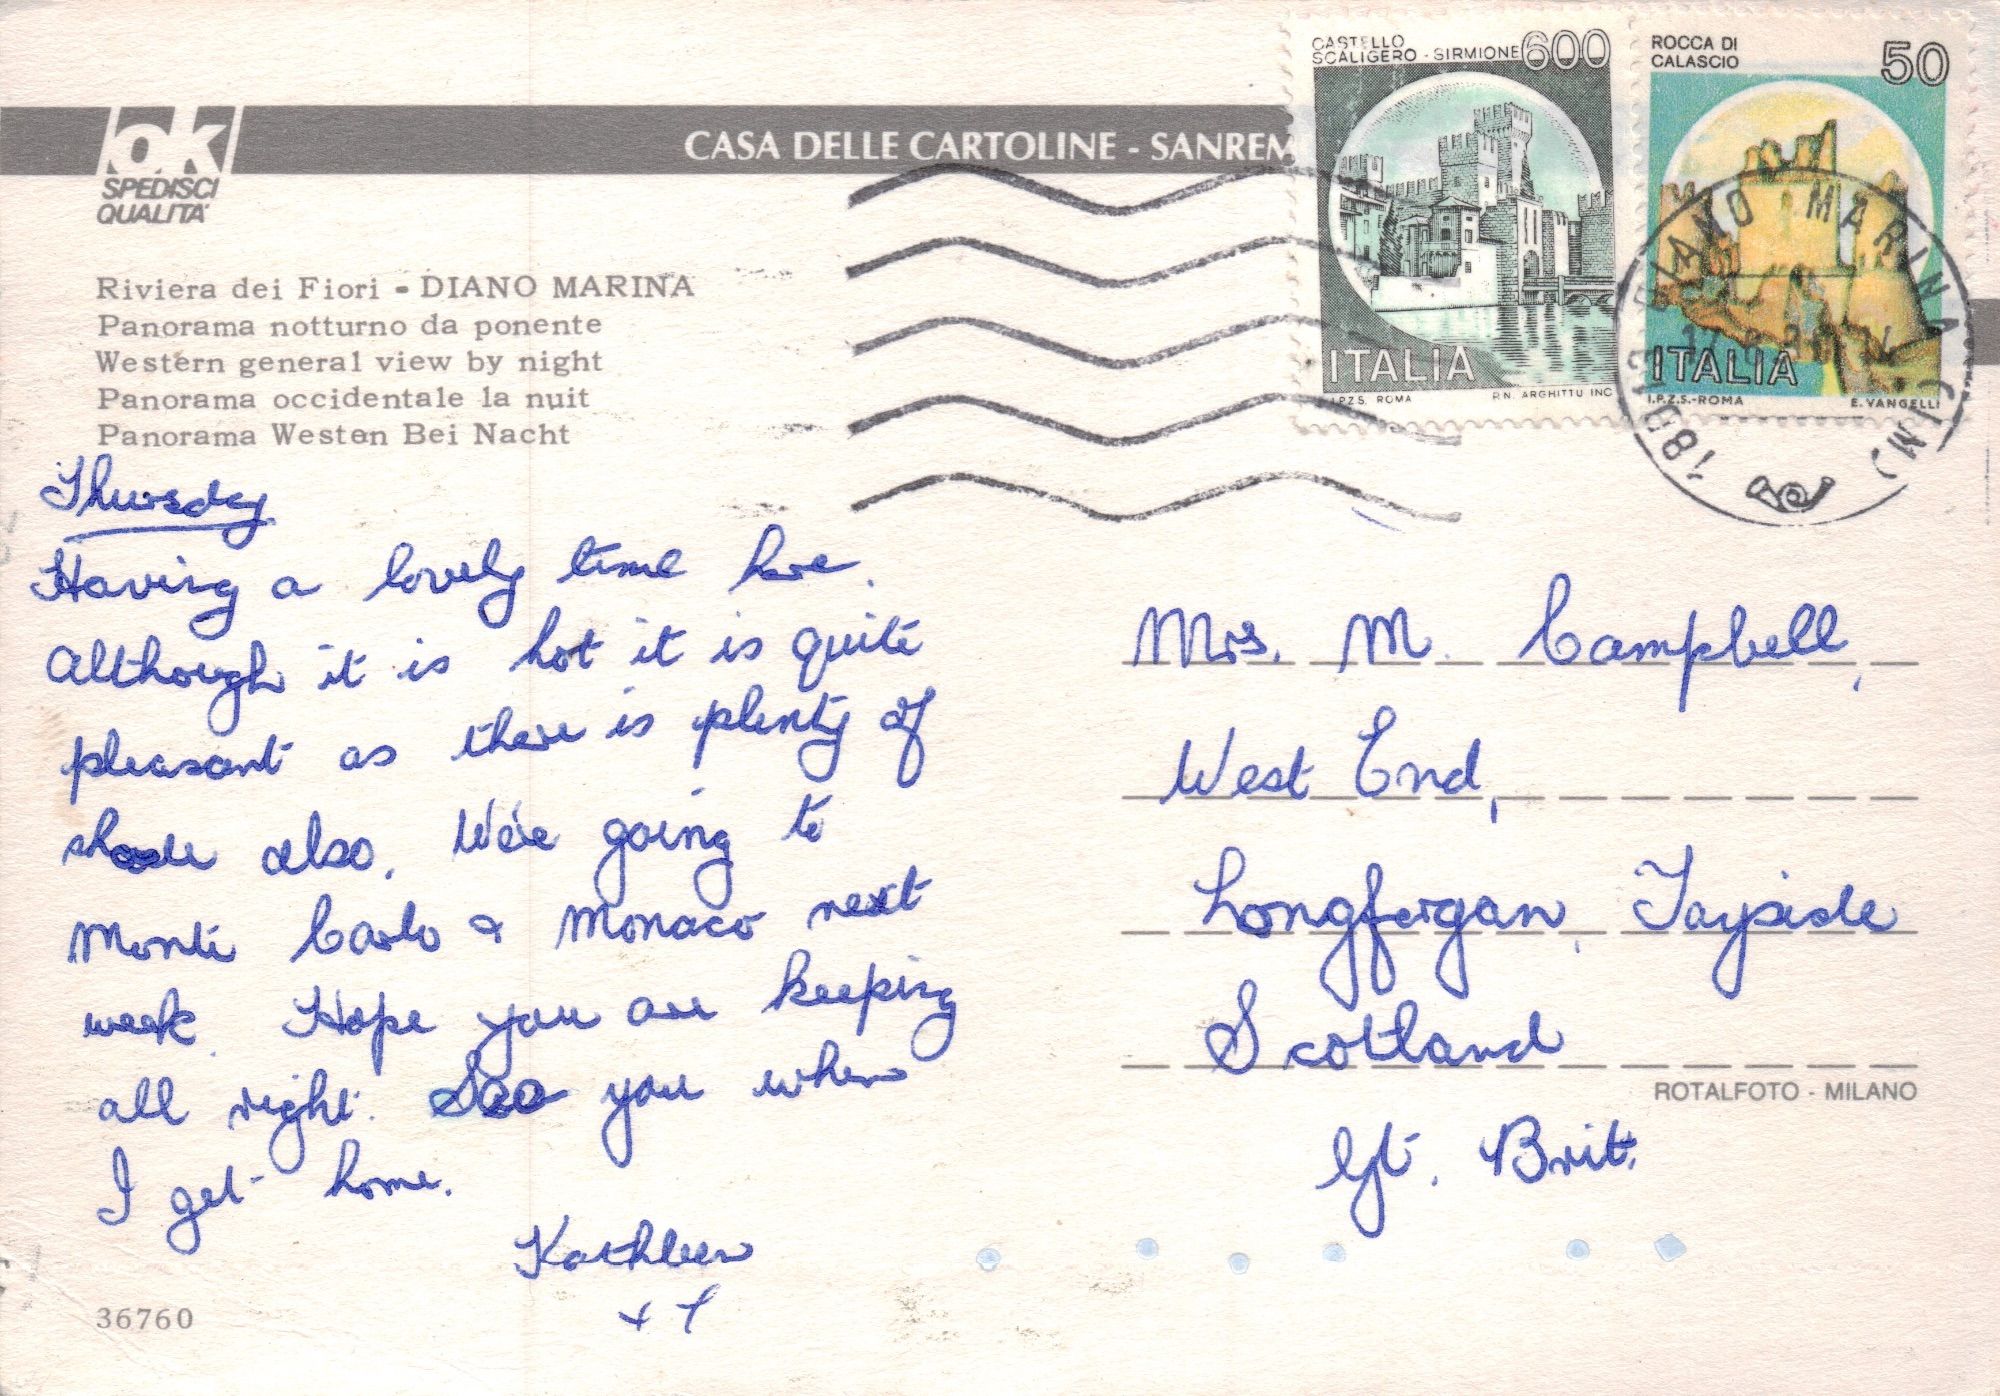 ok
SPEDISCI
QUALITA'
CASA DELLE CARTOLINE - SANREM
CASTELLO
SCALIGERO - SIRMIONE 600
ITALIA
I.P.Z.S. ROMA P.N. ARGHITTU INC
ROCCA DI
CALASCIO 50
ITALIA
I.P.Z.S.-ROMA E. VANGELLI
DIANO MARINA (IM)
18013
Riviera dei Fiori - DIANO MARINA
Panorama notturno da ponente
Western general view by night
Panorama occidentale la nuit
Panorama Westen Bei Nacht
Thursday
Having a lovely time here.
Although it is hot it is quite
pleasant as there is plenty of
shade also. We're going to
Monte Carlo & Monaco next
week. Hope you are keeping
all right. See you when
I get home.
Kathleen
x x
36760
Mrs. M. Campbell,
West End,
Longforgan, Tayside
Scotland
ROTALFOTO - MILANO
Gt. Brit.